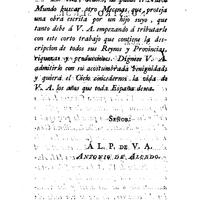 Mundo buscar otro Mecenas que proteja
una obra escrita por un hijo suyo, que
tanto debe á V. A. empezando á tributarle
con este corto trabajo que contiene la des-
cripcion de todos sus Reynos y Provincias,
riquezas y producciones. Dígnese V. A.
admitirlo con su acostumbrada benignidad,
y quiera el Cielo concedernos la vida de
V. A. los años que toda España desea.
SEÑOR.
Á L. P. DE V. A.
ANTONIO DE